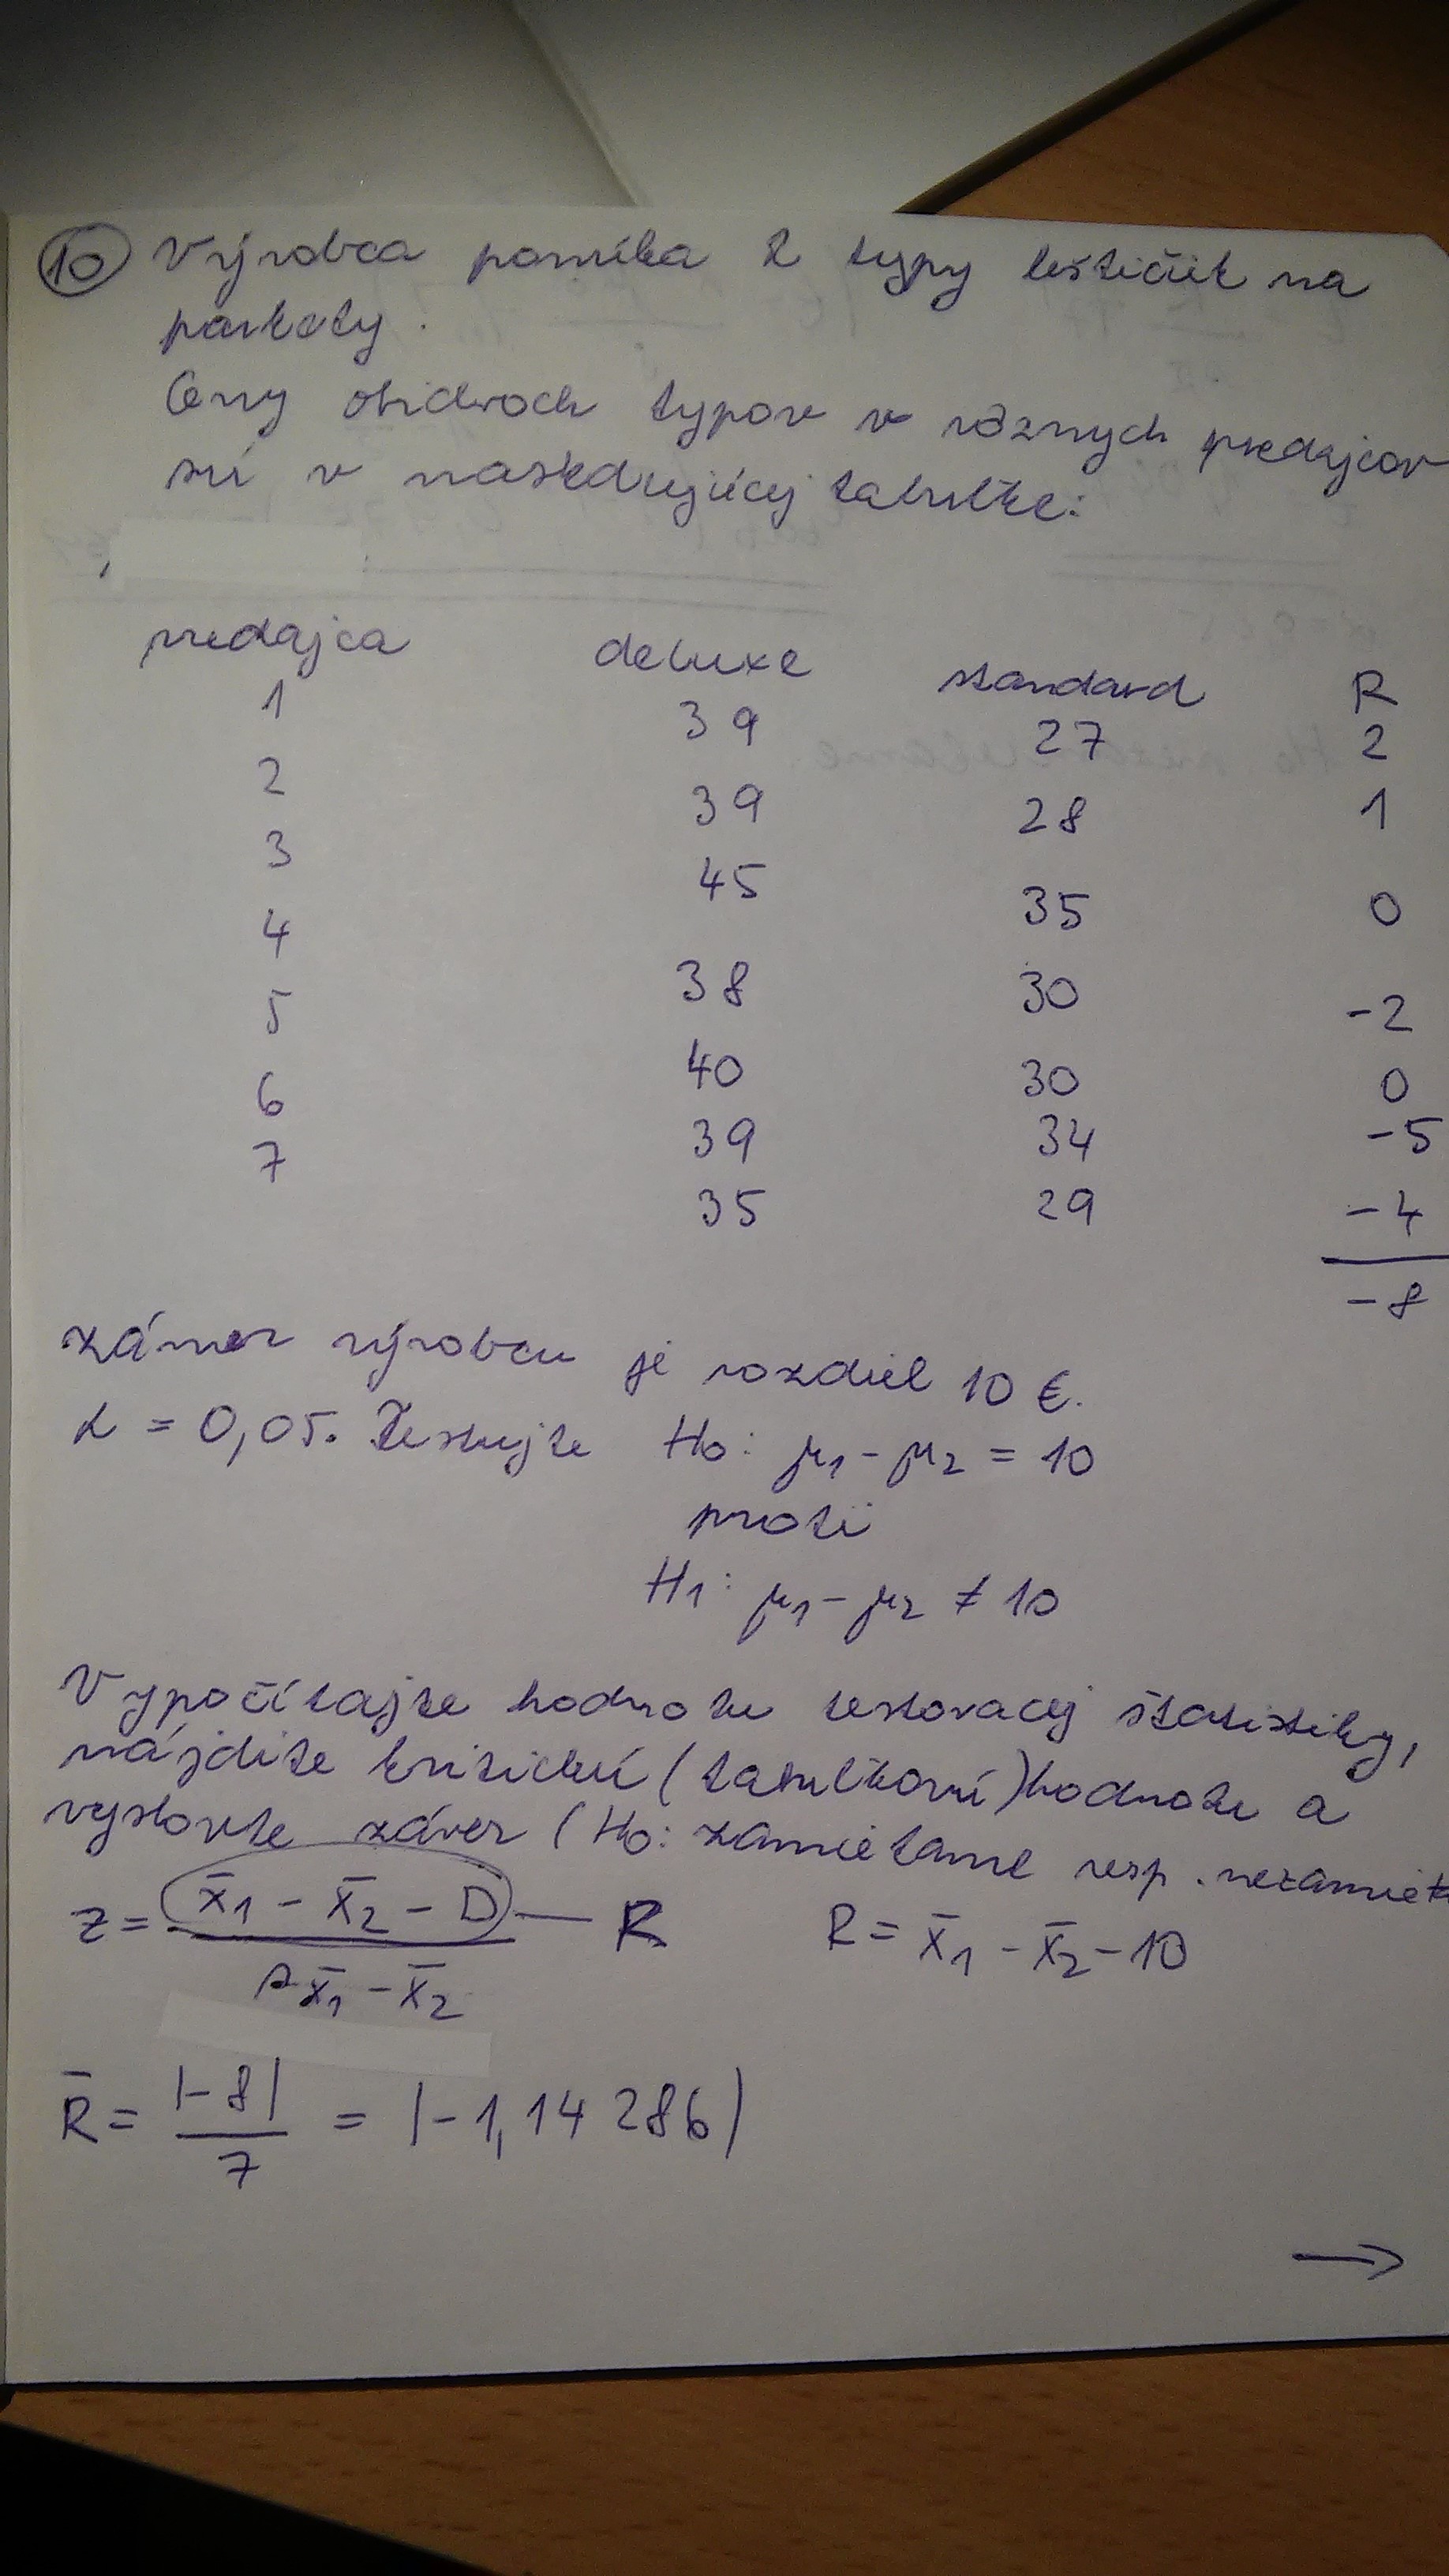 10 Výrobca ponúka 2 typy leštičiek na
parkety.
Ceny obidvoch typov v rôznych predajcov
sú v nasledujúcej tabuľke:
predajca deluxe standard R
1 39 27 2
2 39 28 1
3 45 35 0
4 38 30 -2
5 40 30 0
6 39 34 -5
7 35 29 -4
-8
zámer výrobcu je rozdiel 10 €.
α = 0,05. Testujte H0: μ1 - μ2 = 10
proti
H1: μ1 - μ2 ≠ 10
Vypočítajte hodnotu testovacej štatistiky,
nájdite kritickú (tabuľkovú) hodnotu a
vyslovte záver (H0: zamietame resp. nezamiet
z = (x̄1 - x̄2 - D) / s x̄1 - x̄2 — R R = x̄1 - x̄2 - 10
R̄ = |-8| / 7 = |-1,14286|
→